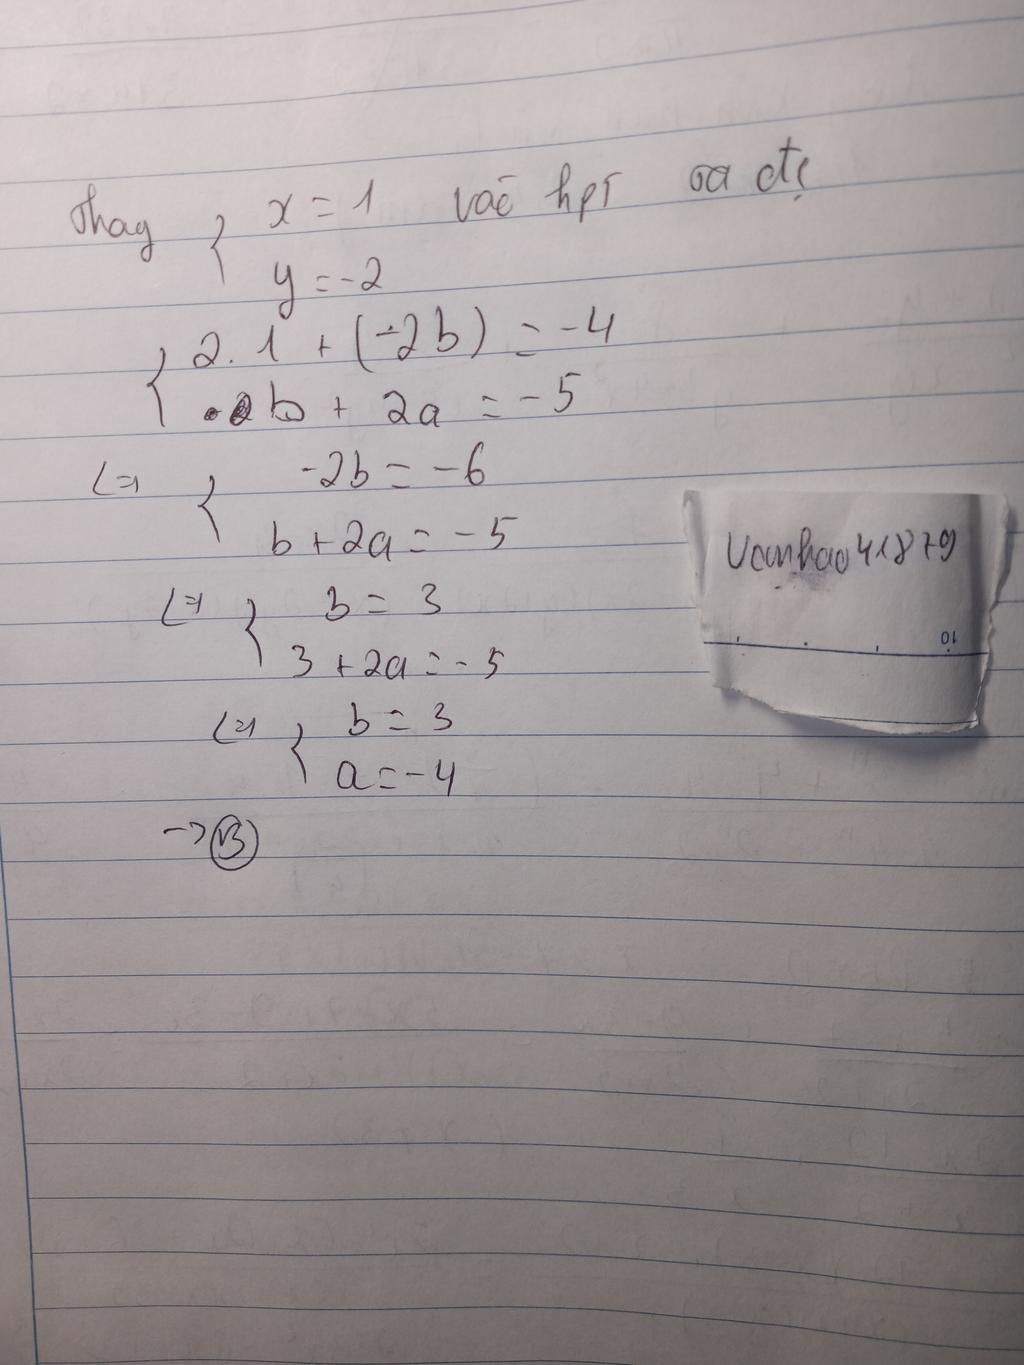 Thay { x = 1 vào hpt ta đc
y = -2
{ 2.1 + (-2b) = -4
b + 2a = -5
<=> { -2b = -6
b + 2a = -5
<=> { b = 3
3 + 2a = -5
<=> { b = 3
a = -4
-> B
Vanhao41879
10